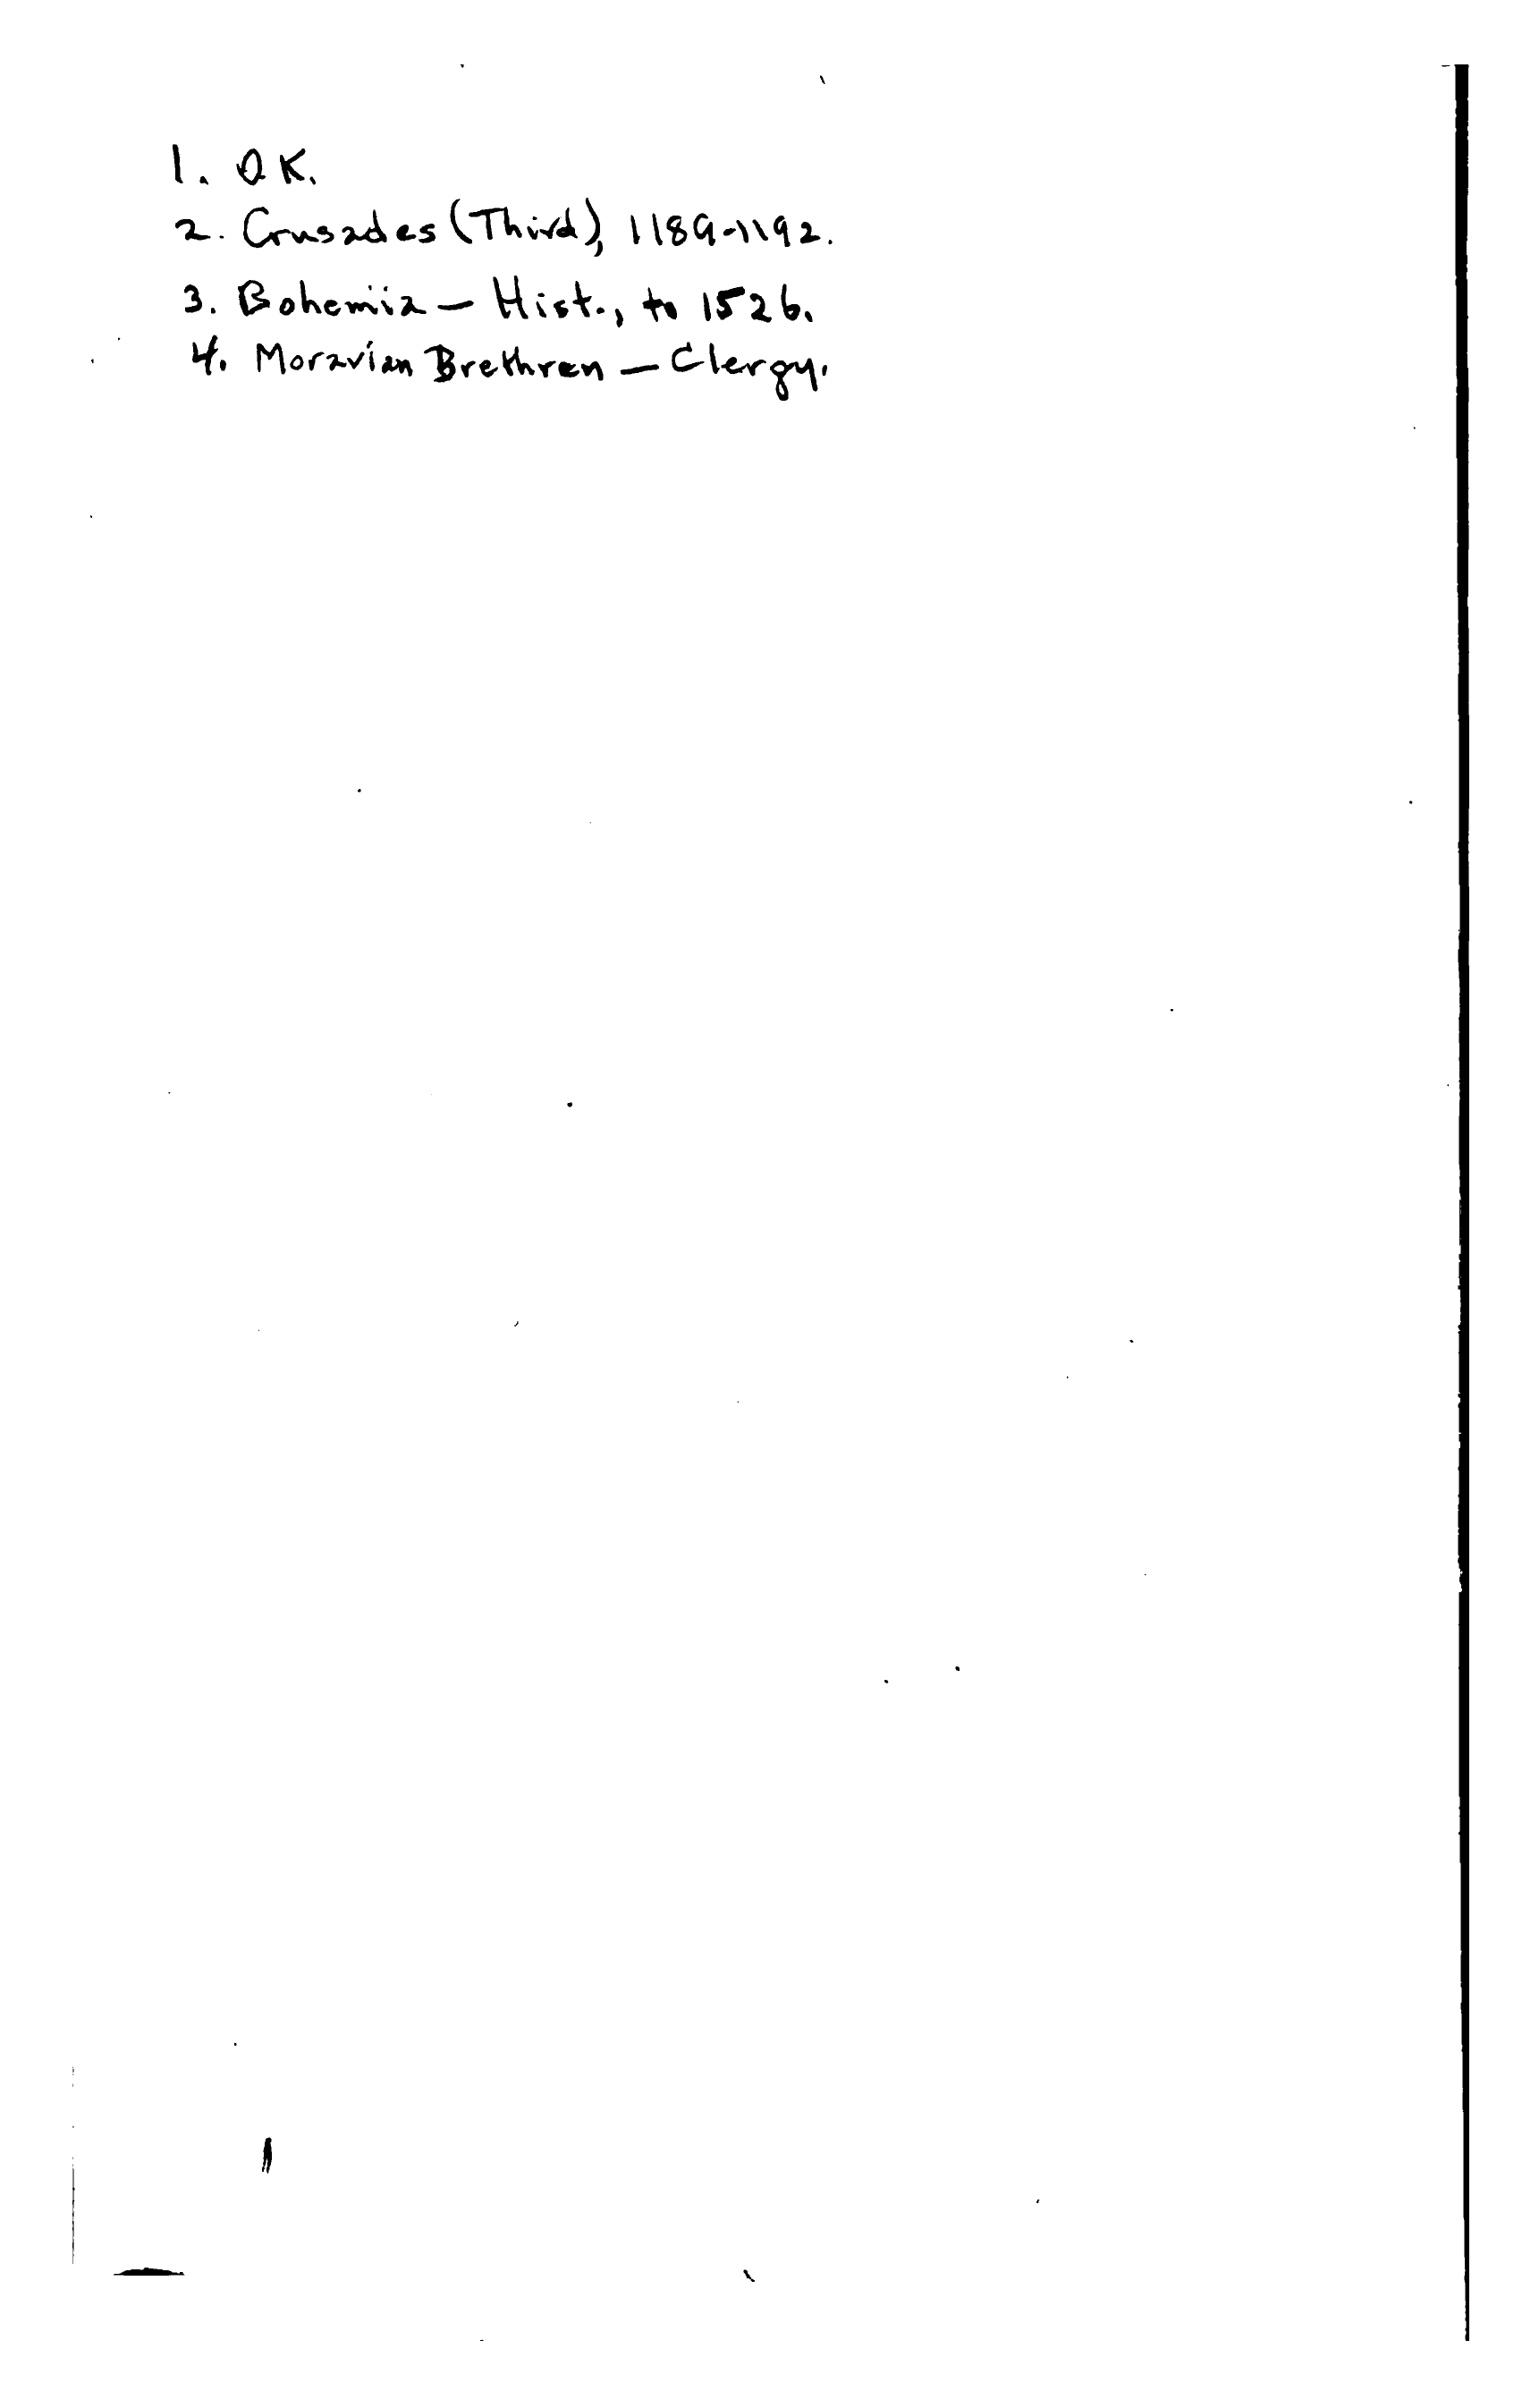 1. OK.
2. Crusades (Third), 1189-1192.
3. Bohemia — Hist., to 1526.
4. Moravian Brethren — Clergy.